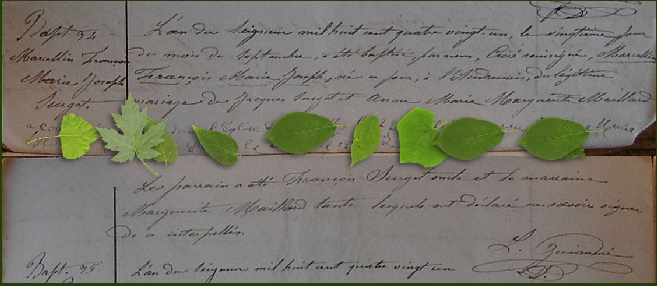 Bapt. 34
Marcellin François
Marie Joseph
Surget.
L'an du Seigneur mil huit cent quatre vingt un, le vingtième jour
du mois de septembre, a été baptisé par nous, Curé soussigné, Marcellin
François Marie Joseph, né ce jour, à du légitime
mariage de Jacques Surget et Anne Marie Marguerite Maillard
Le parrain a été François Surget oncle et la marraine
Marguerite Maillard tante lesquels ont déclaré ne savoir signer
de ce interpellés.
Bapt. 35
L'an du Seigneur mil huit cent quatre vingt un